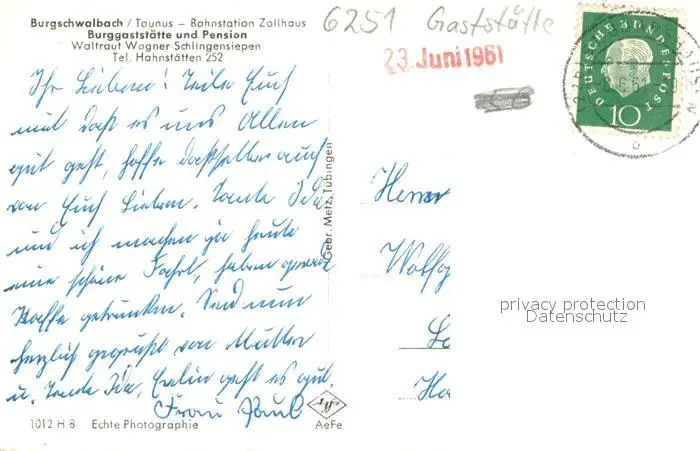 Burgschwalbach / Taunus – Bahnstation Zollhaus
Burggaststätte und Pension
Waltraut Wagner-Schlingensiepen
Tel. Hahnstätten 252
6251 Gaststätte
23. Juni 1961
DEUTSCHE BUNDESPOST
10
Ihr Lieben! Teile Euch
mit daß es uns Allen
gut geht, hoffe dasselbe auch
von Euch Lieben. Tante Ida
und ich machen ja heute
eine schöne Fahrt, haben gerade
Kaffe getrunken. Seid nun
herzlich gegrüßt von Mutter
u. Tante Ida, geht es gut.
Frau Paul
Gebr. Metz, Tübingen
Herrn
Wolfg
Ha
privacy protection
Datenschutz
1012 H 8 Echte Photographie
AeFe